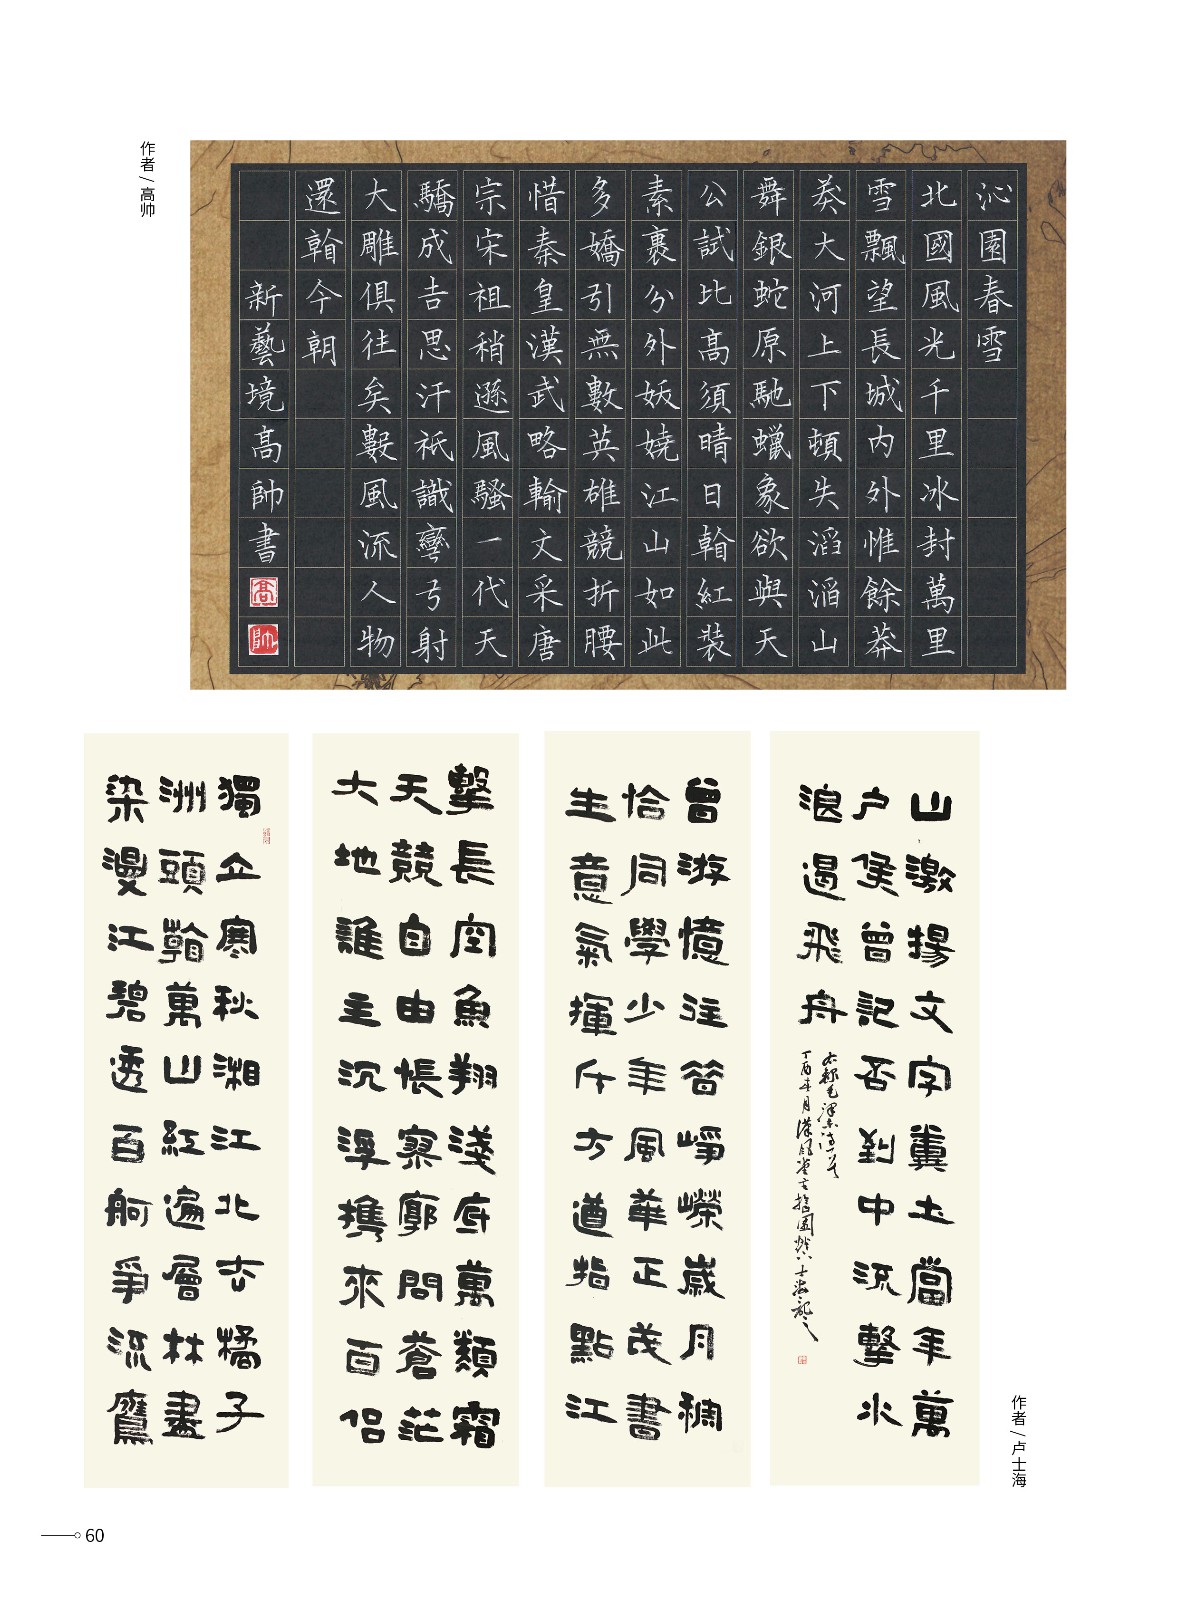 作者/高帅
沁園春雪
北國風光千里冰封萬里
雪飄望長城内外惟餘莽
莽大河上下頓失滔滔山
舞銀蛇原馳蠟象欲與天
公試比高須晴日看紅裝
素裹分外妖嬈江山如此
多嬌引無數英雄競折腰
惜秦皇漢武略輸文采唐
宗宋祖稍遜風騷一代天
驕成吉思汗祇識彎弓射
大雕俱往矣數風流人物
還看今朝
新藝境高帥書
高
帥
獨立寒秋湘江北去橘子
洲頭看萬山紅遍層林盡
染漫江碧透百舸爭流鷹
擊長空魚翔淺底萬類霜
天競自由悵寥廓問蒼茫
大地誰主沉浮攜來百侣
曾游憶往昔崢嶸歲月稠
恰同學少年風華正茂書
生意氣揮斥方遒指點江
山激揚文字糞土當年萬
户侯曾記否到中流擊水
浪遏飛舟
右録毛澤東
士海記之
作者/卢士海
60